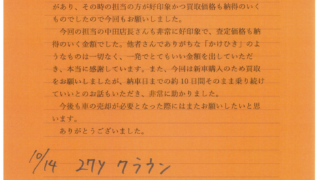 があり、その時の担当の方が好印象かつ買取価格も納得のいく
ものでしたので今回もお願いしました。
今回の担当の中田店長さんも非常に好印象で、査定価格も納
得のいく金額でした。他者さんでありがちな「かけひき」のよう
なものは一切なく、一発でとてもいい金額を出していただ
き、本当に感謝しています。また、今回は新車購入のため買取
をお願いしましたが、納車日までの約10日間そのまま乗り続け
ていいとのお話もいただき、非常に助かりました。
今後も車の売却が必要となった際にはまたお願いしたいと思
います。
ありがとうございました。
10/14 27Y クラウン